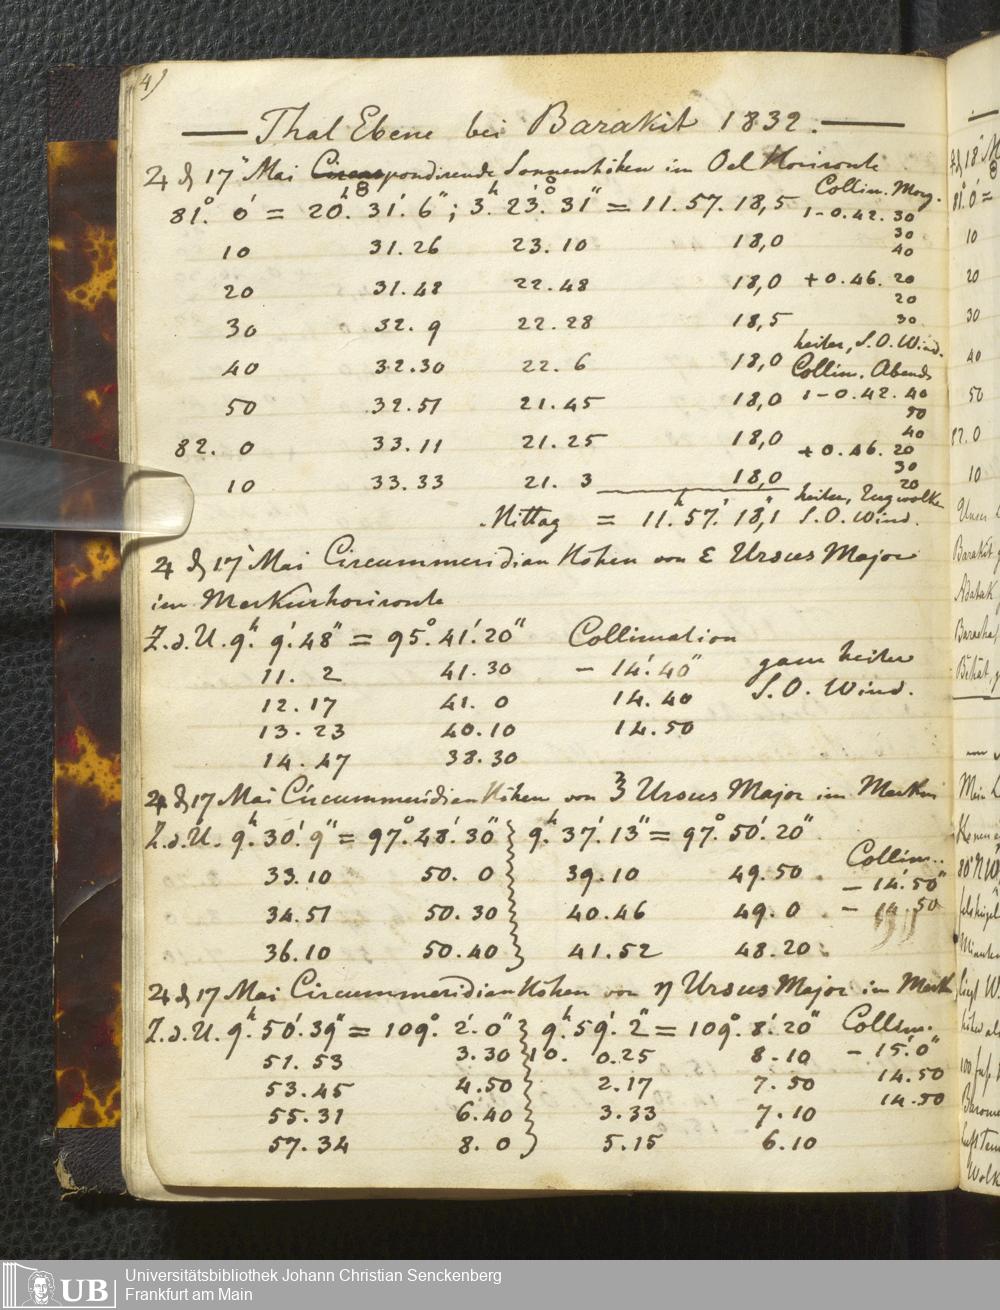 4)
Thal Ebene bei Barakit 1832.
♃ d 17 Mai pondirende Sonnenhöhen im Oel Horizonte
Collim. Morg.
81°. 0' = 20h. 31'. 6"; 3h. 23'. 31" = 11. 57. 18,5 1-0. 42. 30
30
10 31. 26 23. 10 18,0 40
20 31. 48 22. 48 18,0 +0. 46. 20
20
30 32. 9 22. 28 18,5 30
heiter, S. O. Wind.
40 32. 30 22. 6 18,0 Collim. Abends
50 32. 51 21. 45 18,0 1-0. 42. 40
50
82. 0 33. 11 21. 25 18,0 40
+0. 46. 20
30
10 33. 33 21. 3 18,0 20
heiter, Zugwolke
Mittag = 11h. 57'. 18,1" S. O. Wind.
♃ d 17 Mai Circummeridian Höhen von ε Ursus Major
im Merkurhorizonte
Z. d. U. 9h. 9'. 48" = 95°. 41'. 20" Collimation
11. 2 41. 30 - 14'. 40" ganz heiter
12. 17 41. 0 14. 40 S. O. Wind.
13. 23 40. 10 14. 50
14. 47 38. 30
♃ d 17 Mai Circummeridian Höhen von ζ Ursus Major im Merkur
Z. d. U. 9h. 30'. 9" = 97°. 48'. 30" 9h. 37'. 13" = 97°. 50'. 20"
Collim.
33. 10 50. 0 39. 10 49. 50 - 14'. 50"
34. 51 50. 30 40. 46 49. 0 - 14. 50
36. 10 50. 40 41. 52 48. 20
♃ d 17 Mai Circummeridian Höhen von η Ursus Major im Merk
Z. d. U. 9h. 50'. 39" = 109°. 2'. 0" 9h. 59'. 2" = 109°. 8'. 20" Collim.
51. 53 3. 30 10. 0. 25 8. 10 - 15'. 0"
53. 45 4. 50 2. 17 7. 50 14. 50
55. 31 6. 40 3. 33 7. 10 14. 50
57. 34 8. 0 5. 15 6. 10
81°. 0' =
10
20
30
40
50
82. 0
10
UB
Universitätsbibliothek Johann Christian Senckenberg
Frankfurt am Main